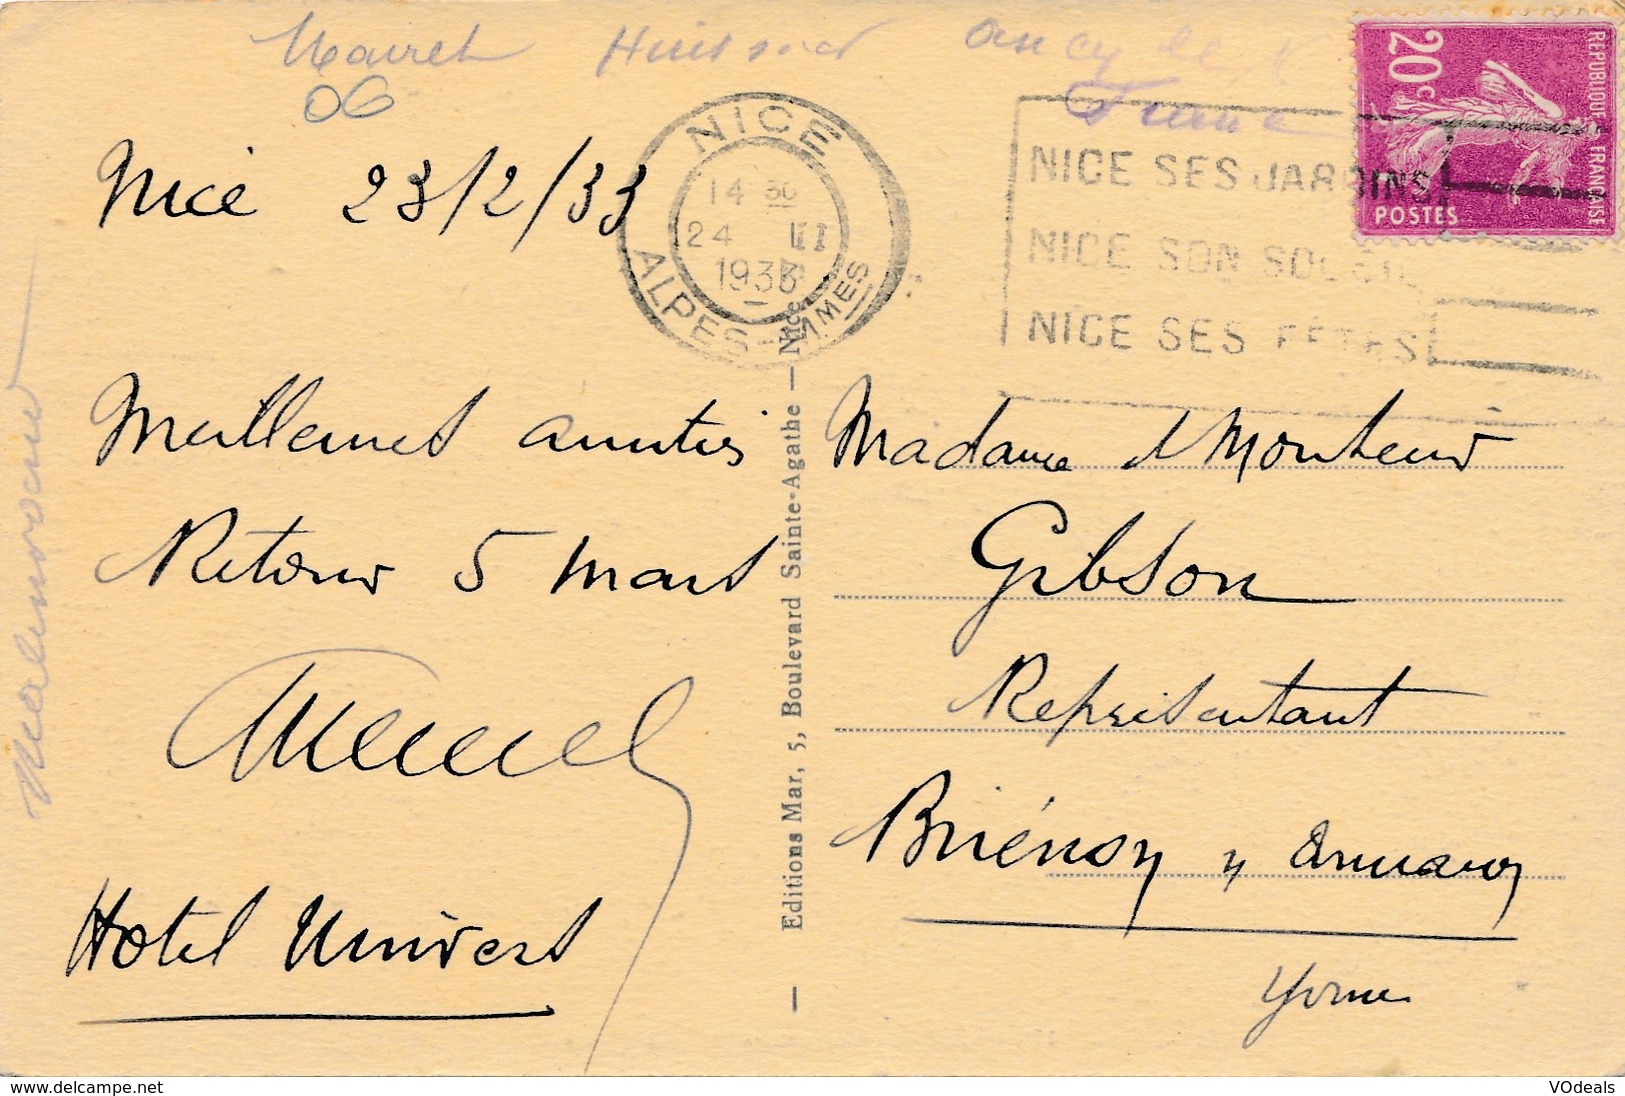 Mairet Huissier Ancy le
France
06
20c
REPUBLIQUE FRANÇAISE
POSTES
NICE
14 30
24 II
1933
ALPES-MMES
NICE SES JARDINS
NICE SON SOLEIL
NICE SES FÊTES
Nice 23/2/33
Meilleures amitiés
Retour 5 Mars
Hotel Univers
Madame & Monsieur
Gibson
Représentant
Brienon s/ Armançon
Yonne
— Editions Mar, 5, Boulevard Sainte-Agathe — Nice
www.delcampe.net
VOdeals